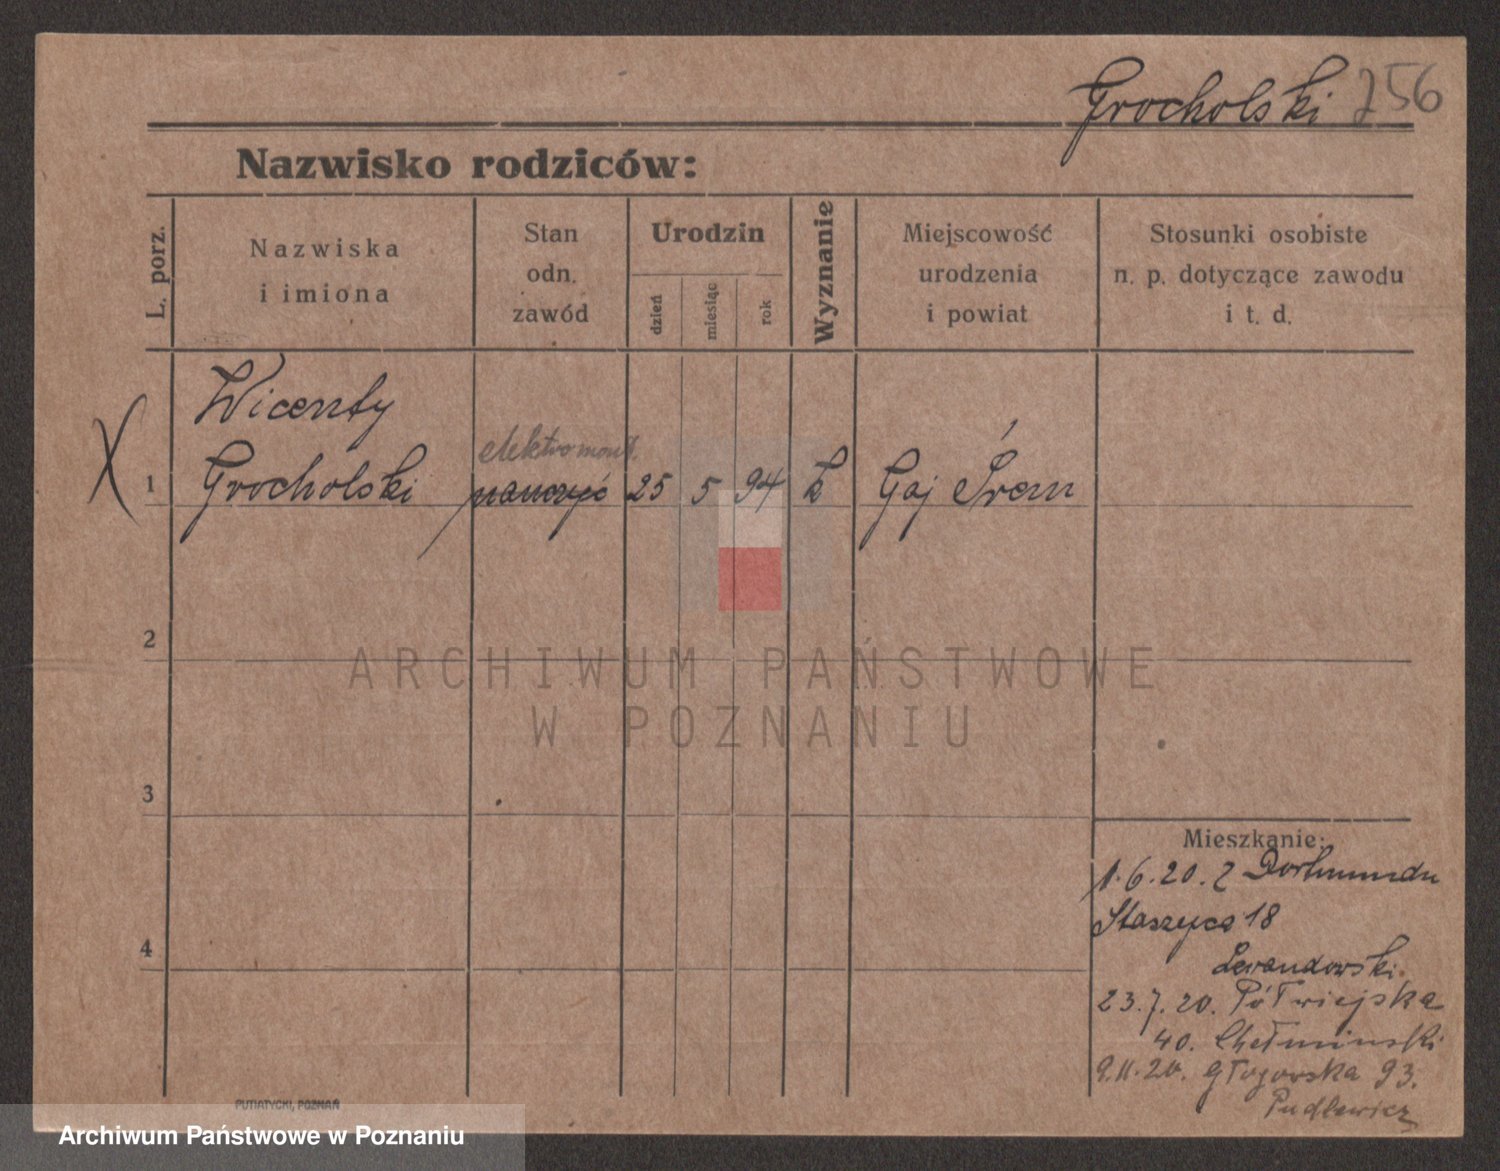 Grocholski 756
Nazwisko rodziców:
L. porz.
Nazwiska
i imiona
Stan
odn.
zawód
Urodzin
dzień
miesiąc
rok
Wyznanie
Miejscowość
urodzenia
i powiat
Stosunki osobiste
n. p. dotyczące zawodu
i t. d.
Wicenty
elektromont.
X 1 Grocholski 25 5 94 Gaj Śrem
2
3
4
Mieszkanie:
1.6.20. Z Dortmundu
Staszyca 18
Lewandowski.
23.7.20. Półwiejska
40. Chełminski
9.11.20. Głogowska 93.
Pudlewicz
PUTIATYCKI, POZNAŃ
ARCHIWUM PAŃSTWOWE
W POZNANIU
Archiwum Państwowe w Poznaniu